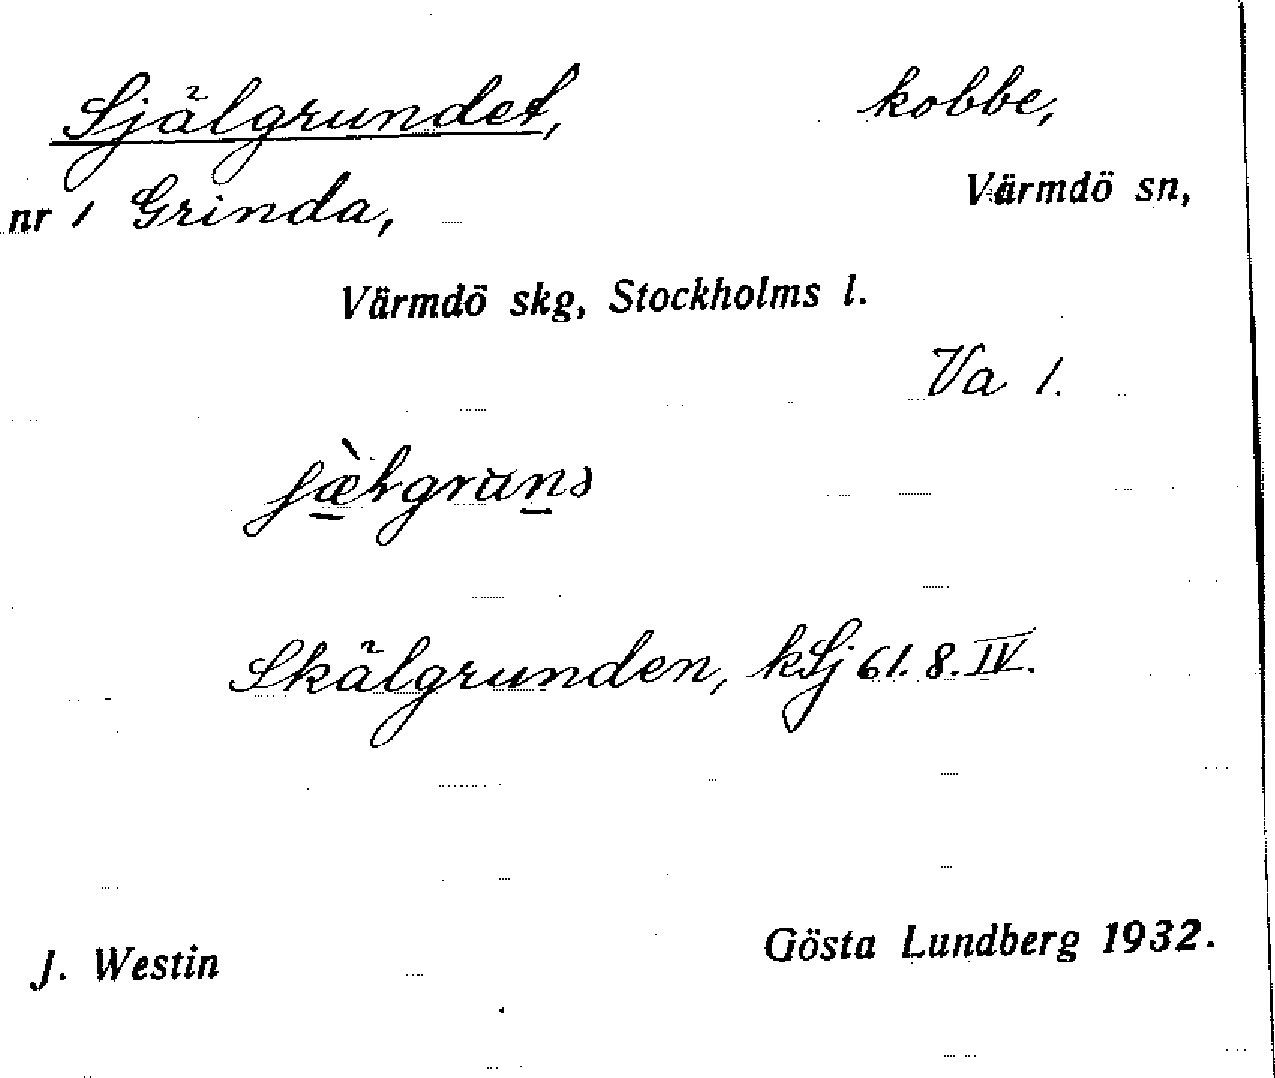 Själgrundet, kobbe,
nr 1 Grinda, Värmdö sn,
Värmdö skg, Stockholms l.
Va 1.
Skälgrunden, kSj 61. 8. IV.
J. Westin Gösta Lundberg 1932.